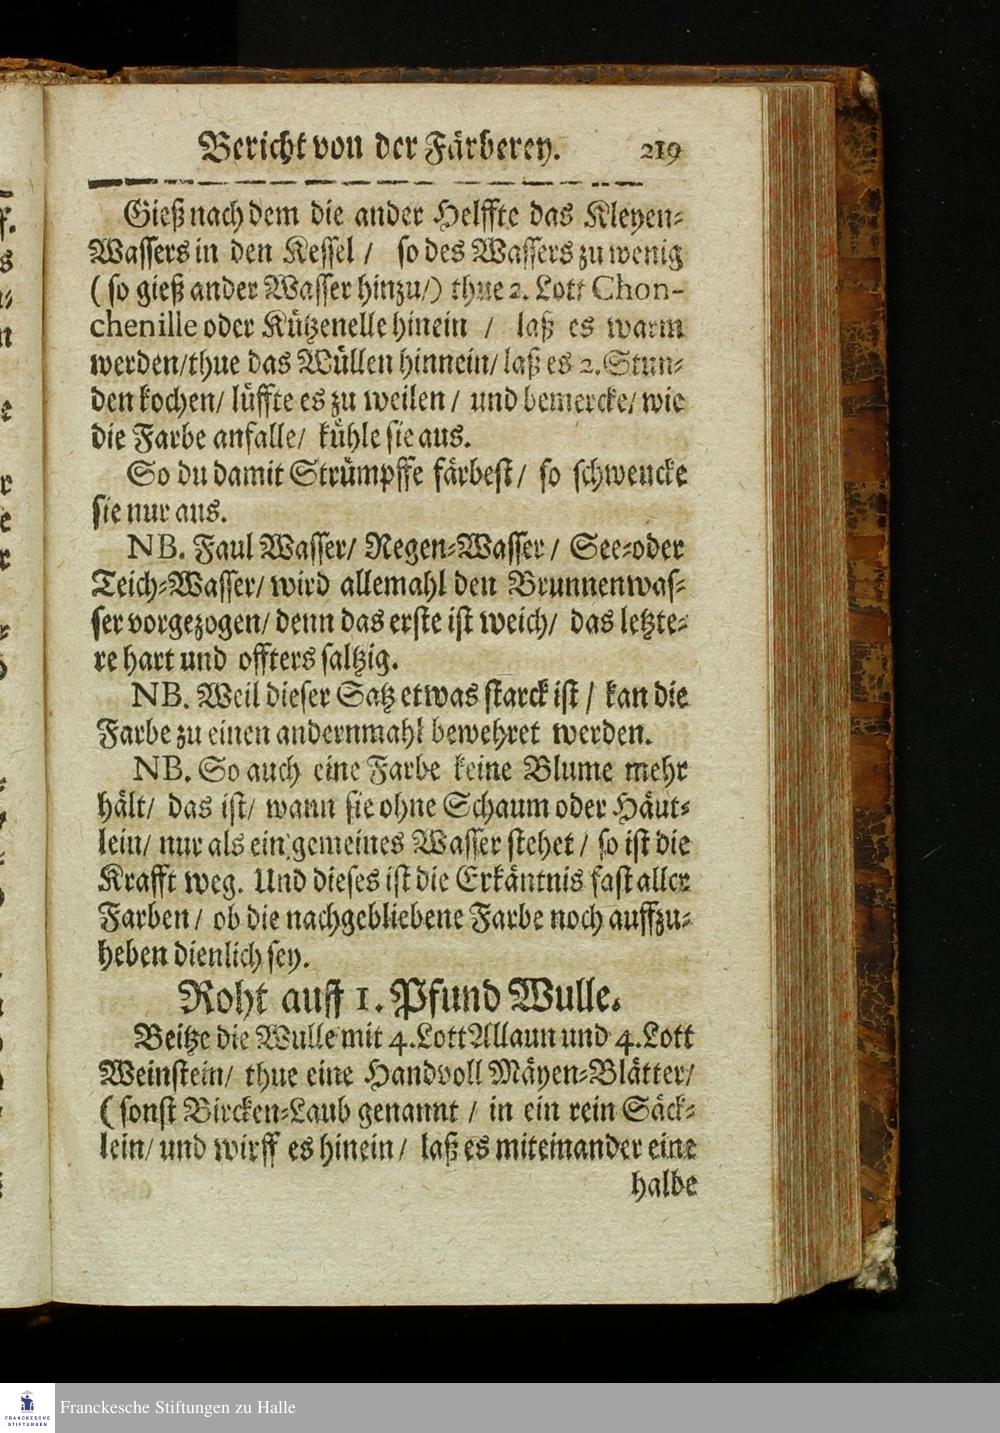 Bericht von der Färberey. 219
Gieß nach dem die ander Helffte das Kleyen-
Wassers in den Kessel / so des Wassers zu wenig
( so gieß ander Wasser hinzu/) thue 2. Lott Chon-
chenille oder Kützenelle hinein / laß es warm
werden/thue das Wüllen hinnein/ laß es 2. Stun-
den kochen/ lüffte es zu weilen / und bemercke/ wie
die Farbe anfalle/ kühle sie aus.
So du damit Strümpffe färbest/ so schwencke
sie nur aus.
NB. Faul Wasser/ Regen-Wasser / See-oder
Teich-Wasser/ wird allemahl den Brunnenwas-
ser vorgezogen/ denn das erste ist weich/ das letzte-
re hart und offters saltzig.
NB. Weil dieser Satz etwas starck ist / kan die
Farbe zu einen andernmahl bewehret werden.
NB. So auch eine Farbe keine Blume mehr
hält/ das ist/ wann sie ohne Schaum oder Häut-
lein/ nur als ein gemeines Wasser stehet / so ist die
Krafft weg. Und dieses ist die Erkäntnis fast aller
Farben / ob die nachgebliebene Farbe noch auffzu-
heben dienlich sey.
Roht auff 1. Pfund Wulle.
Beitze die Wulle mit 4. Lott Allaun und 4. Lott
Weinstein/ thue eine Handvoll Mäyen-Blätter/
( sonst Bircken-Laub genannt / in ein rein Säck-
lein/ und wirff es hinein / laß es miteinander eine
halbe
FRANCKESCHE
STIFTUNGEN
Franckesche Stiftungen zu Halle